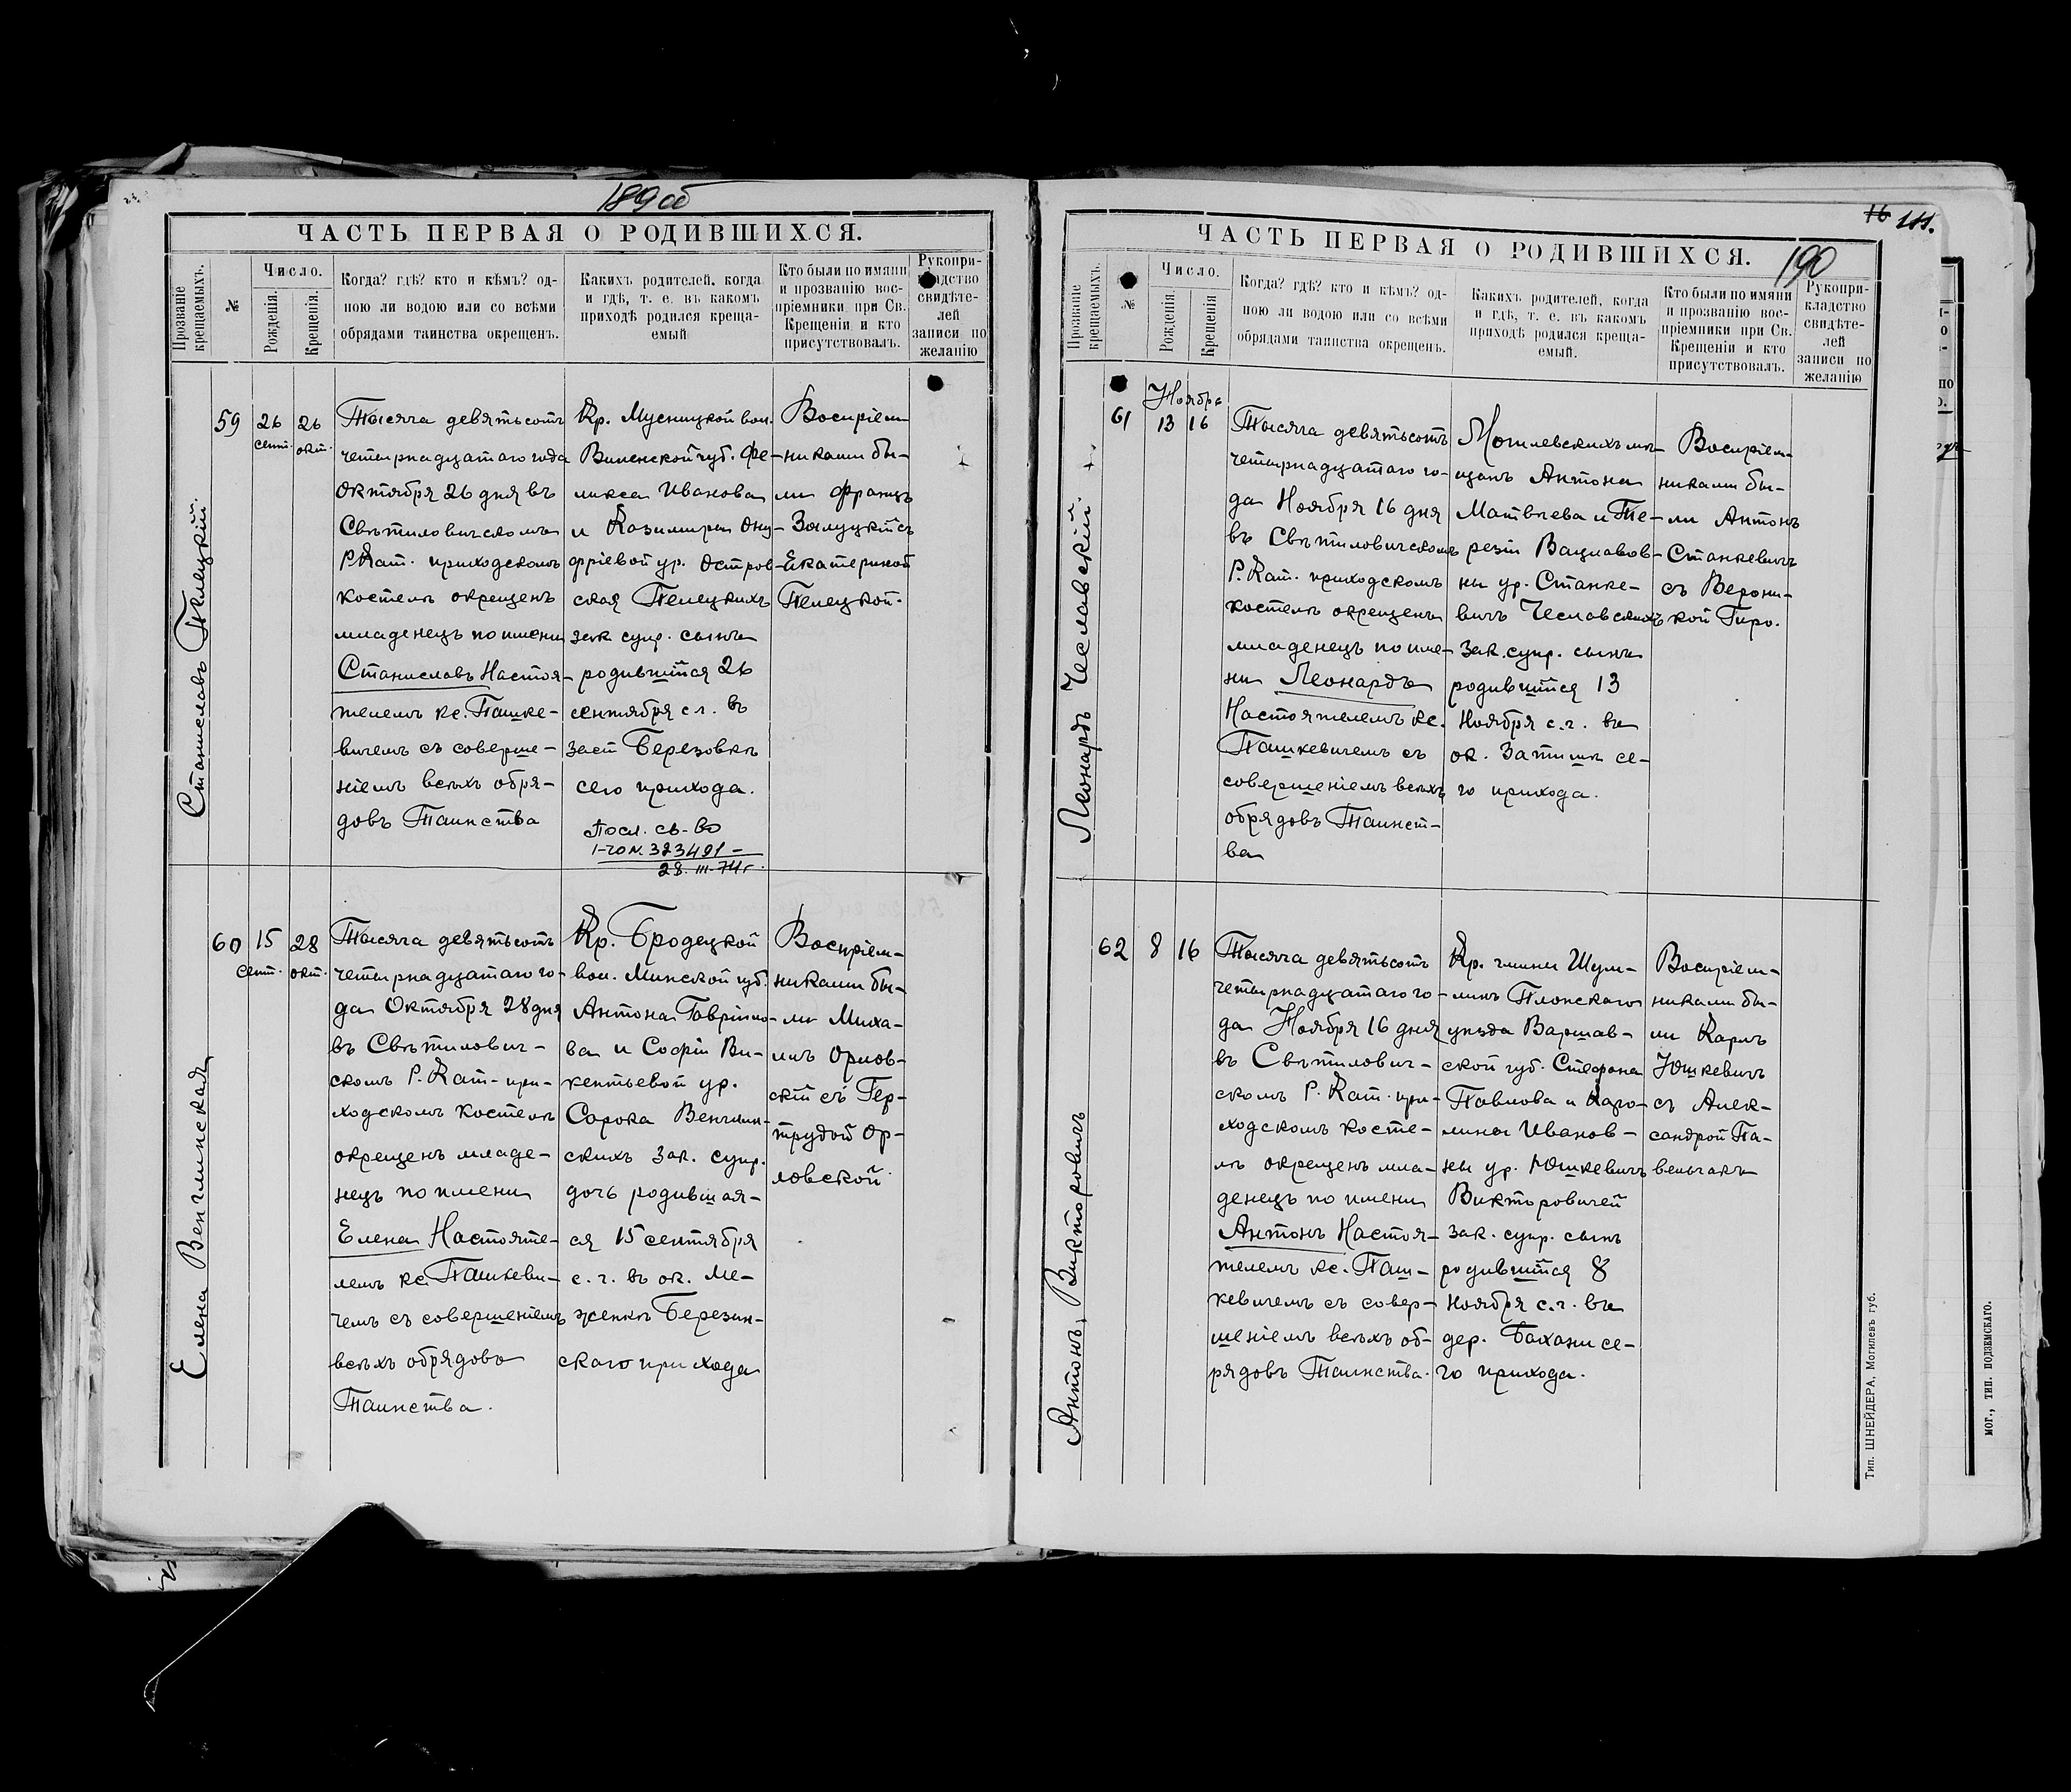 189 об
ЧАСТЬ ПЕРВАЯ О РОДИВШИХСЯ.
Прозваніе крещаемыхъ.
№
Число.
Рожденія.
Крещенія.
Когда? гдѣ? кто и кѣмъ? од-
ною ли водою или со всѣми
обрядами таинства окрещенъ.
Какихъ родителей, когда
и гдѣ, т. е. въ какомъ
приходѣ родился креща-
емый
Кто были по имяни
и прозванію вос-
пріемники при Св.
Крещеніи и кто
присутствовалъ.
Рукопри-
кладство
свидѣте-
лей
записи по
желанію
Станиславъ Пелецкій.
59
26
сент.
26
окт.
Тысяча девятьсотъ
четырнадцатаго года
Октября 26 дня въ
Свѣтиловичскомъ
Р. Кат. приходскомъ
костелѣ окрещенъ
младенецъ по имени
Станиславъ Настоя-
телемъ кс. Пашке-
вичемъ съ соверше-
ніемъ всѣхъ обря-
довъ Таинства
Кр. Мусницкой вол.
Виленской губ. Фе-
ликса Иванова
и Казимиры Ону-
фріевой ур. Остров-
ская Пелецкихъ
зак супр. сынъ
родившійся 26
сентября с г. въ
заст Березовкѣ
сего прихода.
Посл. св-во
1-го N. 323491 -
28. III-74г.
Воспріем
никами бы-
ли Францъ
Залуцкій съ
Екатериной
Пелецкой.
Елена Венглинская
60
15
сент.
28
окт.
Тысяча девятьсотъ
четырнадцатаго го-
да Октября 28 дня
въ Свѣтилович-
скомъ Р. Кат- при-
ходскомъ костелѣ
окрещенъ младе-
нецъ по имени
Елена Настояте-
лемъ кс. Пашкеви-
чемъ съ совершеніемъ
всѣхъ обрядовъ
Таинства.
Кр. Бродецкой
вол. Минской губ.
Антона Гавріило-
ва и Софіи Ви-
кентьевой ур.
Сорока Венглин-
скихъ зак. супр.
дочь родившая-
ся 15 сентября
с. г. въ ок. Ме-
женкѣ Березин-
скаго прихода
Воспріем-
никами бы-
ли Миха-
илъ Орлов-
скій съ Гер-
трудой Ор-
ловской
16 111.
190
ЧАСТЬ ПЕРВАЯ О РОДИВШИХСЯ.
Прозваніе крещаемыхъ.
№
Число.
Рожденія.
Крещенія
Когда? гдѣ? кто и кѣмъ? од-
ною ли водою или со всѣми
обрядами таинства окрещенъ.
Какихъ родителей, когда
и гдѣ, т. е. въ какомъ
приходѣ родился креща-
емый.
Кто были по имяни
и прозванію вос-
пріемники при Св.
Крещеніи и кто
присутствовалъ.
Рукопри-
кладство
свидѣте-
лей
записи по
желанію
Леонардъ Чеславскій.
Ноябрь
61
13
16
Тысяча девятьсотъ
четырнадцатаго го-
да Ноября 16 дня
въ Свѣтиловичскомъ
Р. Кат. приходскомъ
костелѣ окрещенъ
младенецъ по име-
ни Леонардъ
Настоятелемъ кс.
Пашкевичемъ съ
совершеніемъ всѣхъ
обрядовъ Таинст-
ва
Могилевскихъ мѣ-
щанъ Антона
Матвѣева и Те-
резіи Вацлавов-
ны ур. Станке-
вичъ Чеславскихъ
зак. супр. сынъ
родившійся 13
Ноября с.г. въ
ок. Затишѣ се-
го прихода.
Воспріем-
никами бы-
ли Антонъ
Станкевичъ
съ Верони-
кой Гиро.
Антонъ, Викторовичъ
62
8
16
Тысяча девятьсотъ
четырнадцатаго го-
да Ноября 16 дня
въ Свѣтилович-
скомъ Р. Кат. при-
ходскомъ косте-
лѣ окрещенъ мла-
денецъ по имени
Антонъ Настоя-
телемъ кс. Паш-
кевичемъ съ совер-
шеніемъ всѣхъ об-
рядовъ Таинства.
Кр. гмины Шум-
линъ Плонскаго
уѣзда Варшав-
ской губ. Стефана
Павлова и Каро-
лины Иванов-
ны ур. Юшкевичъ
Викторовичей
зак. супр. сынъ
родившійся 8
Ноября с.г. въ
дер. Бахани се-
го прихода.
Воспріем-
никами бы-
ли Карлъ
Юшкевичъ
съ Алек-
сандрой Па-
вельчакъ
Тип. ШНЕЙДЕРА, Могилевъ губ.
МОГ., ТИП. ПОДЗЕМСКАГО.